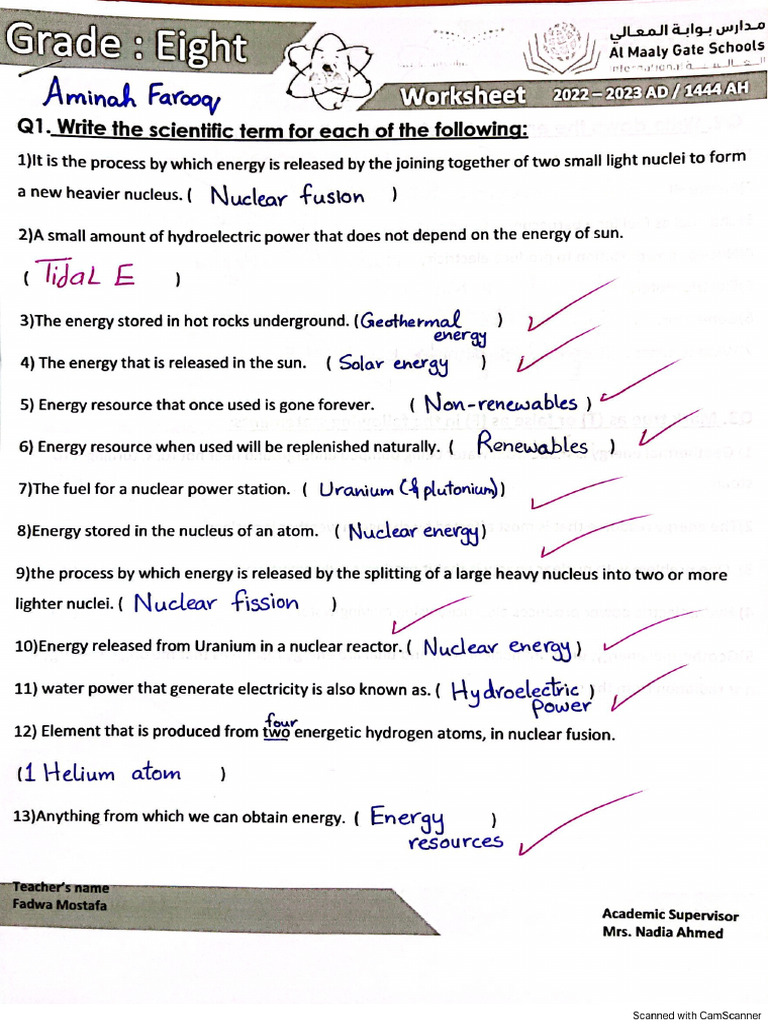 Grade : Eight
مدارس بوابة المعالي
Al Maaly Gate Schools
Aminah Farooq
Worksheet 2022 – 2023 AD / 1444 AH
Q1. Write the scientific term for each of the following:
1)It is the process by which energy is released by the joining together of two small light nuclei to form
a new heavier nucleus. ( Nuclear fusion )
2)A small amount of hydroelectric power that does not depend on the energy of sun.
( Tidal E )
3)The energy stored in hot rocks underground. (Geothermal )
energy
4) The energy that is released in the sun. ( Solar energy )
5) Energy resource that once used is gone forever. ( Non-renewables )
6) Energy resource when used will be replenished naturally. ( Renewables )
7)The fuel for a nuclear power station. ( Uranium (& plutonium))
8)Energy stored in the nucleus of an atom. ( Nuclear energy)
9)the process by which energy is released by the splitting of a large heavy nucleus into two or more
lighter nuclei. ( Nuclear fission )
10)Energy released from Uranium in a nuclear reactor. ( Nuclear energy)
11) water power that generate electricity is also known as. ( Hydroelectric )
power
four
12) Element that is produced from two energetic hydrogen atoms, in nuclear fusion.
(1 Helium atom )
13)Anything from which we can obtain energy. ( Energy )
resources
Teacher's name
Fadwa Mostafa
Academic Supervisor
Mrs. Nadia Ahmed
Scanned with CamScanner